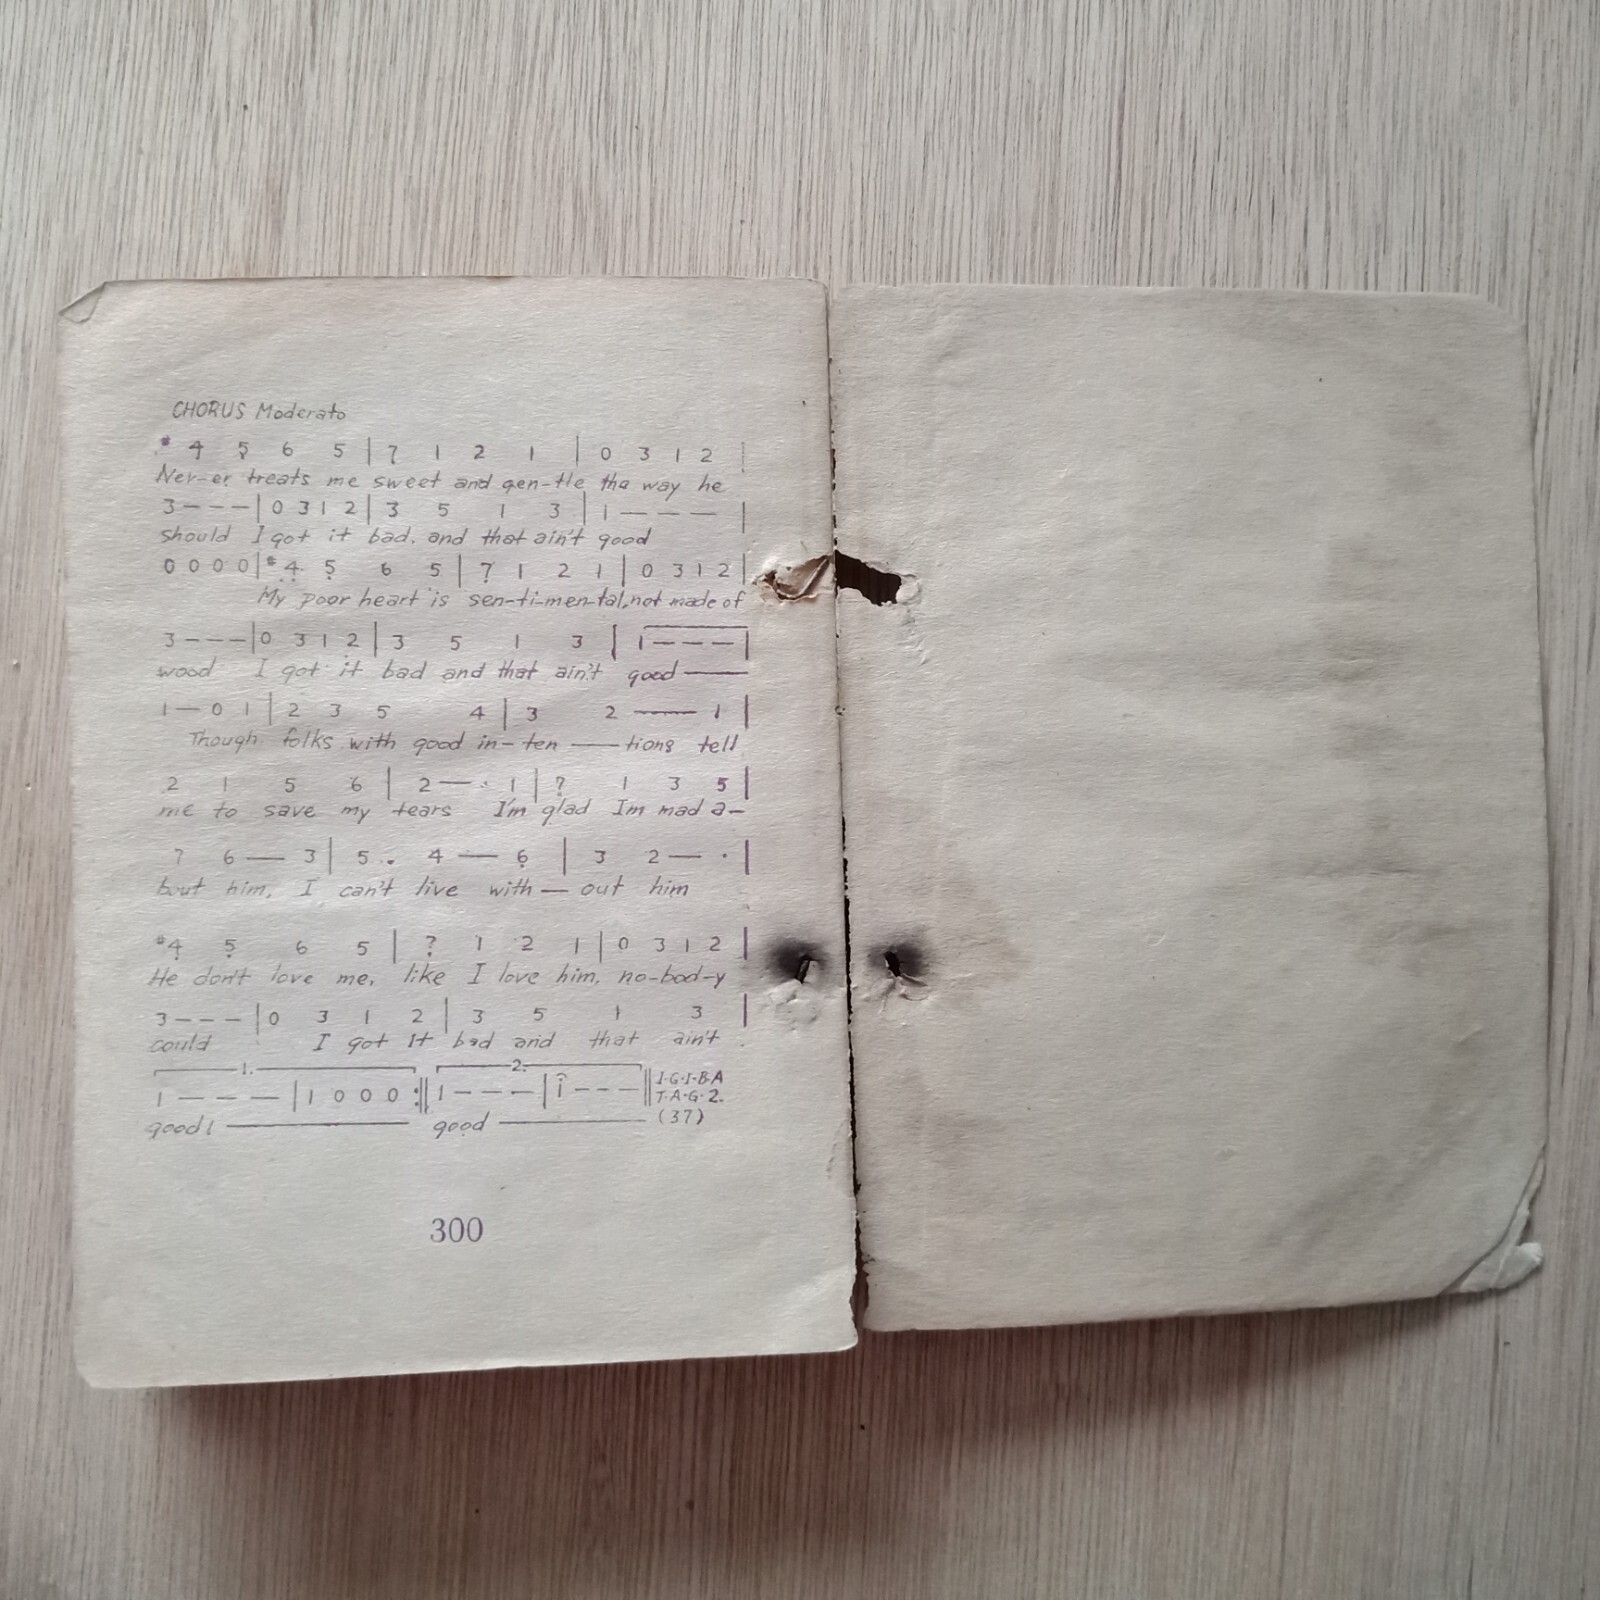 CHORUS Moderato
#4 5 6 5 | 7 1 2 1 | 0 3 1 2 |
Nev-er treats me sweet and gen-tle the way he
3 - - - | 0 3 1 2 | 3 5 1 3 | 1 - - - |
should I got it bad. and that ain't good
0 0 0 0 | #4 5 6 5 | 7 1 2 1 | 0 3 1 2 |
My poor heart is sen-ti-men-tal, not made of
3 - - - | 0 3 1 2 | 3 5 1 3 | 1 - - - |
wood I got it bad and that ain't good ——
1 — 0 1 | 2 3 5 4 | 3 2 —— 1 |
Though folks with good in-ten —— tions tell
2 1 5 6 | 2 — · 1 | 7 1 3 5 |
me to save my tears I'm glad Im mad a-
7 6 — 3 | 5 . 4 — 6 | 3 2 — · |
bout him, I can't live with — out him
#4 5 6 5 | 7 1 2 1 | 0 3 1 2 |
He don't love me, like I love him, no-bod-y
3 - - - | 0 3 1 2 | 3 5 1 3 |
could I got it bad and that ain't
1. 2.
1 — — — | 1 0 0 0 :|| 1 - - - | i - - - || I·G·I·B·A
T·A·G·2.
good! —— good —— (37)
300